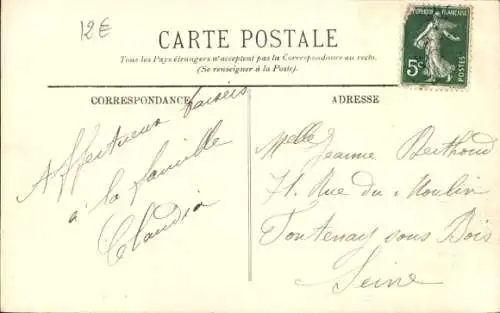 12€
CARTE POSTALE
Tous les Pays étrangers n'acceptent pas la Correspondance au recto.
(Se renseigner à la Poste).
REPUBLIQUE FRANÇAISE
5c
POSTES
CORRESPONDANCE
Affectueux baisers
à la famille
Claudia
ADRESSE
Melle Jeanne Berthoud
71. Rue du Moulin
Fontenay sous Bois
Seine